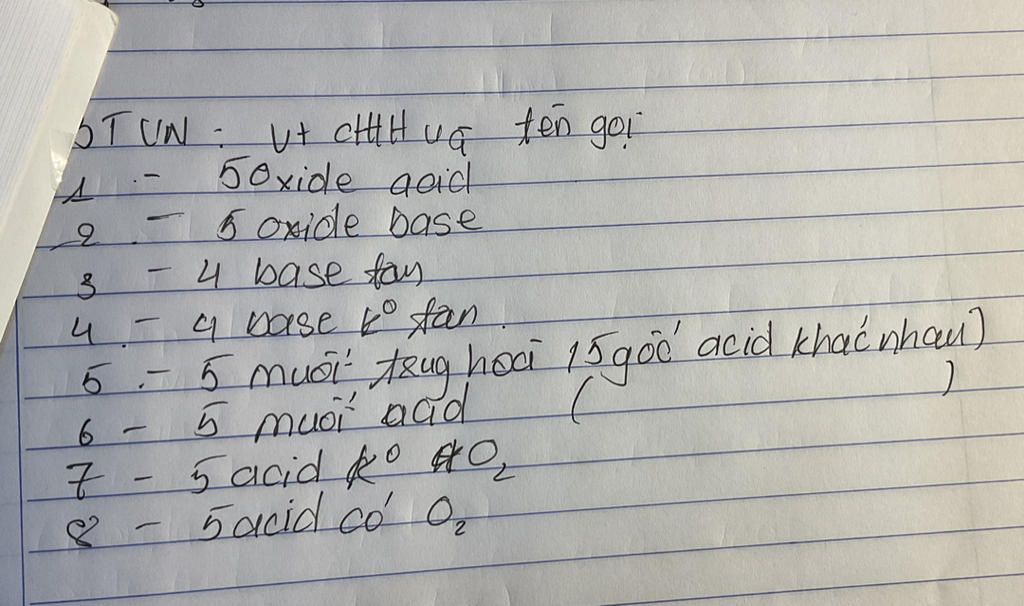 OTVN : Vt CHHH và tên gọi
1 - 5 Oxide acid
2 - 5 oxide base
3 - 4 base tan
4 - 4 base kº tan.
5 - 5 muối trung hoà (5 gốc acid khác nhau)
6 - 5 muối acid ( )
7 - 5 acid kº O₂
8 - 5 acid có O₂